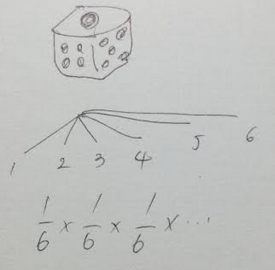 1 2 3 4 5 6
1/6 × 1/6 × 1/6 × ...